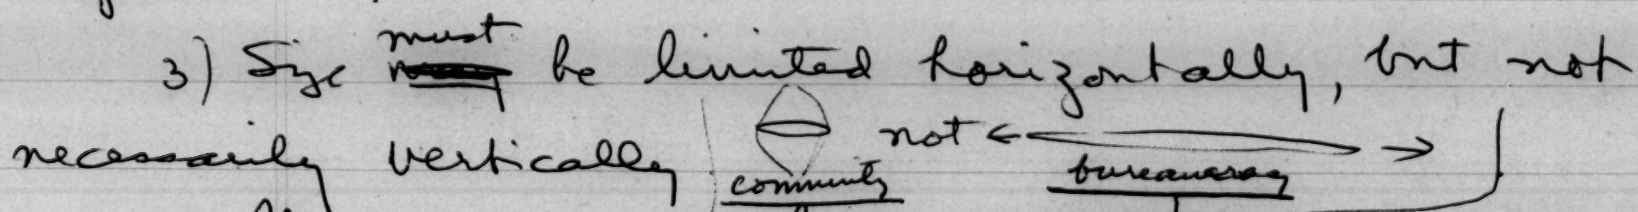 3) Size must be limited horizontally, but not
necessarily vertically community not bureaucracy